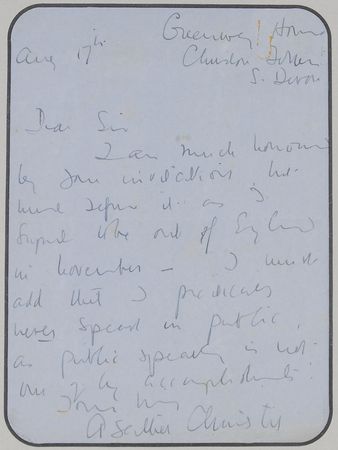 Greenway House
Aug 17th. Churston Ferrers
S. Devon
Dear Sir
I am much honoured
by your invitation but
must refuse it as I
expect to be out of England
in November – I must
add that I practically
never speak in public,
as public speaking is not
one of my accomplishments!
Yours truly
Agatha Christie